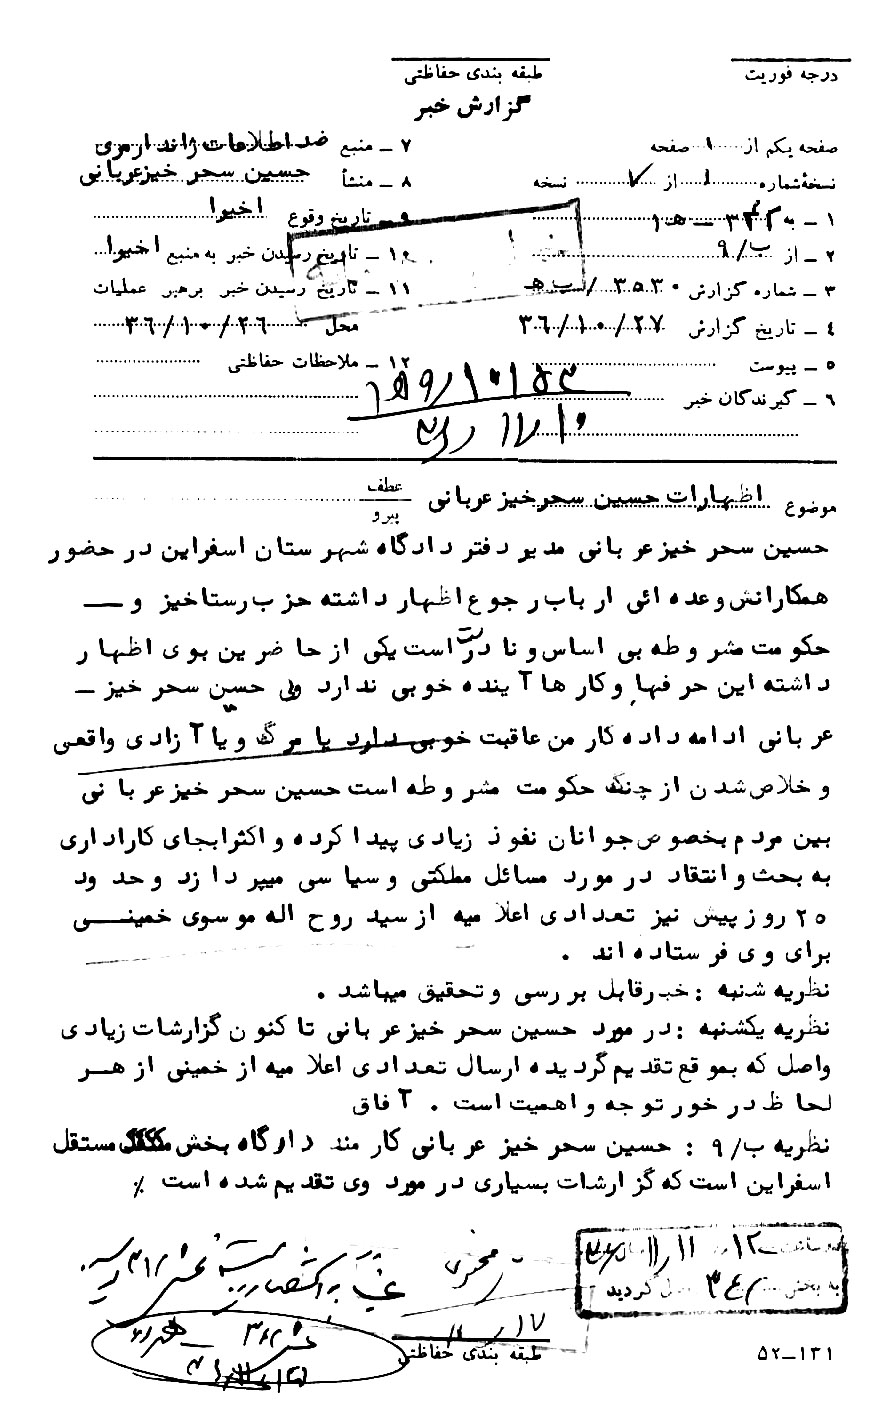 درجه فوریت
طبقه بندی حفاظتی
گزارش خبر
صفحه یکم از ۱ صفحه
۷ ــ منبع ضد اطلاعات ژاندارمری
نسخهٔ شماره ۱ از ۷ نسخه
۸ ــ منشأ حسین سحر خیز عربانی
۱ ــ به
۹ ــ تاریخ وقوع اخیرا
۲ ــ از ۹/ب
۱۰ ــ تاریخ رسیدن خبر به منبع اخیرا
۳ ــ شماره گزارش ۳۵۳۰/ب ه
۱۱ ــ تاریخ رسیدن خبر برهبر عملیات
۴ ــ تاریخ گزارش ۳۶/۱۰/۲۷
محل ۳۶/۱۰/۲۶
۵ ــ پیوست
۱۲ ــ ملاحظات حفاظتی
۶ ــ گیرندگان خبر
موضوع اظهارات حسین سحرخیز عربانی
عطف
پیرو
حسین سحر خیز عربانی مدیر دفتر دادگاه شهرستان اسفراین در حضور
همکارانش وعده ائی ارباب رجوع اظهار داشته حزب رستاخیز و ــ
حکومت مشروطه بی اساس و نادرست است یکی از حاضرین بوی اظهار
داشته این حرفها وکارها آینده خوبی ندارد ولی حسین سحر خیز ــ
عربانی ادامه داده کار من عاقبت خوبی دارد یا مرگ و یا آزادی واقعی
و خلاص شدن از چنگ حکومت مشروطه است حسین سحر خیز عربانی
بین مردم بخصوص جوانان نفوذ زیادی پیدا کرده و اکثرا بجای کاراداری
به بحث وانتقاد در مورد مسائل مملکتی و سیاسی میپردازد وحدود
۲۵ روز پیش نیز تعدادی اعلامیه از سید روح اله موسوی خمینــی
برای وی فرستاده اند .
نظریه شنبه : خبرقابل بررسی وتحقیق میباشد .
نظریه یکشنبه : در مورد حسین سحر خیز عربانی تاکنون گزارشات زیادی
واصل که بموقع تقدیم گردیده ارسال تعدادی اعلامیه از خمینی از هــر
لحاظ در خور توجه واهمیت است . آفاق
نظریه ۹/ب : حسین سحر خیز عربانی کارمند دادگاه بخش مستقل
اسفراین است که گزارشات بسیاری در مورد وی تقدیم شده است ٪
طبقه بندی حفاظتی
۵۲ــ۱۳۱